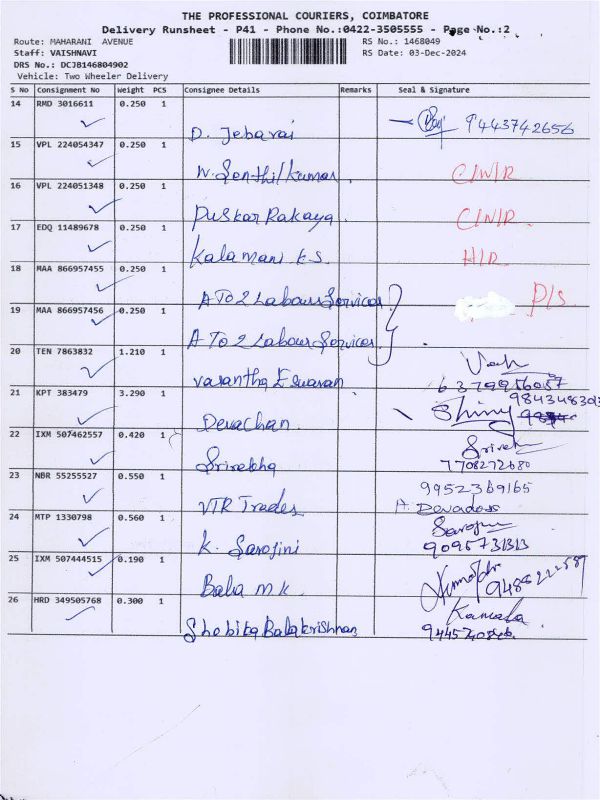 THE PROFESSIONAL COURIERS, COIMBATORE
Delivery Runsheet - P41 - Phone No.:0422-3505555 - Page No.:2
Route: MAHARANI AVENUE RS No.: 1468049
Staff: VAISHNAVI RS Date: 03-Dec-2024
DRS No.: DCJB146804902
Vehicle: Two Wheeler Delivery
S No Consignment No Weight PCS Consignee Details Remarks Seal & Signature
14 RMD 3016611 0.250 1
D. Jebaraj 9443742656
15 VPL 224054347 0.250 1
N. Senthil kumar C/N/R
16 VPL 224051348 0.250 1
Puskar Rakaya C/N/R
17 EDQ 11489678 0.250 1
Kalamani k.s. H/R
18 MAA 866957455 0.250 1
A To Z Labour Services P/S
19 MAA 866957456 0.250 1
A To Z Labour Services
20 TEN 7863832 1.210 1
Vasantha Eswaran 6379956057
21 KPT 383479 3.290 1 9843483013
Devachan Shiny
22 IXM 507462557 0.420 1
Srirekha 7708272680
23 NBR 55255527 0.550 1 9952369165
VTR Trades A. Devadoss
24 MTP 1330798 0.560 1 Sarojini
K. Sarojini 9095731313
25 IXM 507444515 0.190 1
Baba M.K.
26 HRD 349505768 0.300 1 Kamala
Shobika Balakrishnan